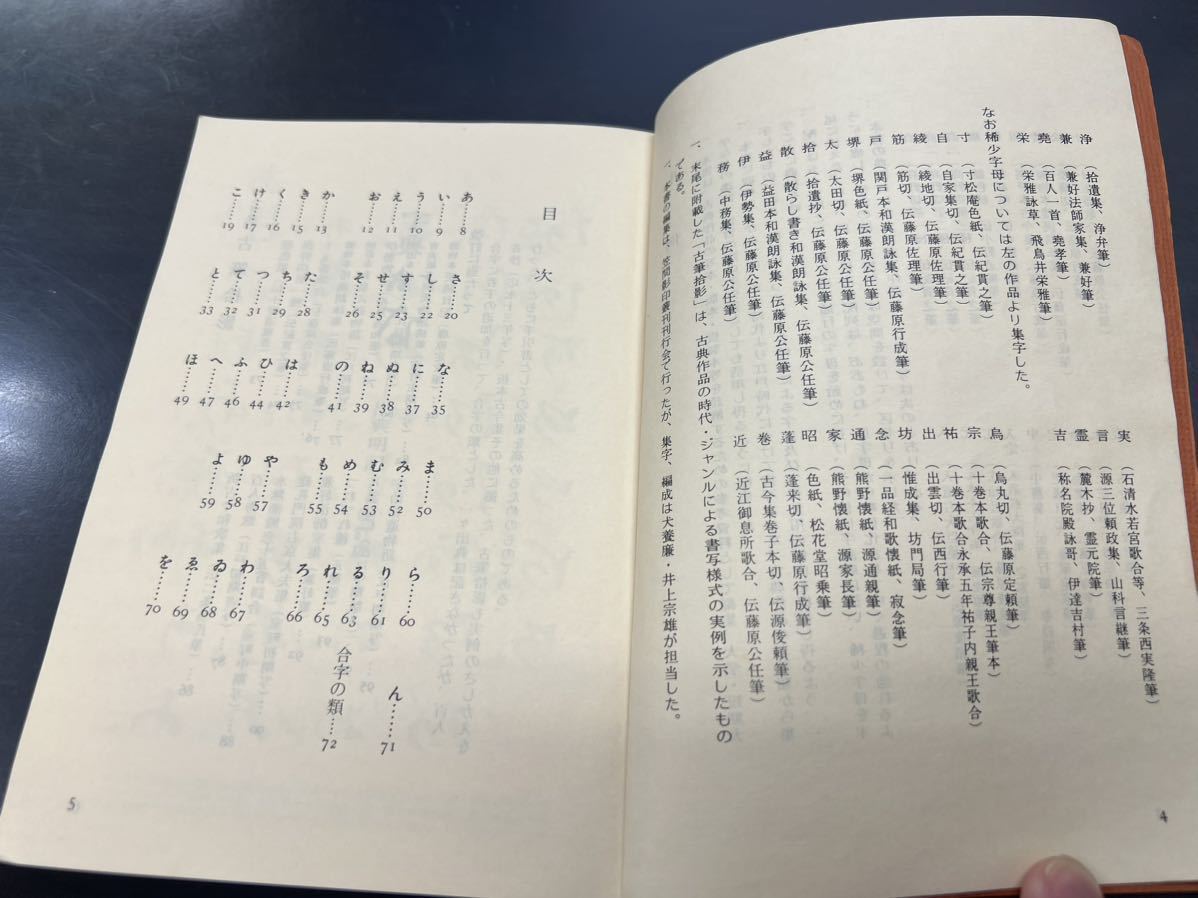 浄(拾遺集、浄弁筆)
兼(兼好法師家集、兼好筆)
堯(百人一首、堯孝筆)
栄(栄雅詠草、飛鳥井栄雅筆)
実(石清水若宮歌合等、三条西実隆筆)
言(源三位頼政集、山科言継筆)
霊(麓木抄、霊元院筆)
吉(称名院殿詠哥、伊達吉村筆)
なお稀少字母については左の作品より集字した。
寸(寸松庵色紙、伝紀貫之筆)
自(自家集切、伝紀貫之筆)
綾(綾地切、伝藤原佐理筆)
筋(筋切、伝藤原佐理筆)
戸(関戸本和漢朗詠集、伝藤原行成筆)
堺(堺色紙、伝藤原公任筆)
太(太田切、伝藤原公任筆)
拾(拾遺抄、伝藤原公任筆)
散(散らし書き和漢朗詠集、伝藤原公任筆)
益(益田本和漢朗詠集、伝藤原公任筆)
伊(伊勢集、伝藤原公任筆)
務(中務集、伝藤原公任筆)
烏(烏丸切、伝藤原定頼筆)
宗(十巻本歌合、伝宗尊親王筆本)
祐(十巻本歌合永承五年祐子内親王歌合)
出(出雲切、伝西行筆)
坊(惟成集、坊門局筆)
念(一品経和歌懐紙、寂念筆)
通(熊野懐紙、源通親筆)
家(熊野懐紙、源家長筆)
昭(色紙、松花堂昭乗筆)
蓬(蓬来切、伝藤原行成筆)
巻(古今集巻子本切、伝源俊頼筆)
近(近江御息所歌合、伝藤原公任筆)
一、末尾に附載した「古筆拾影」は、古典作品の時代・ジャンルによる書写様式の実例を示したもの
である。
一、本書の編集は、笠間影印叢刊刊行会で行ったが、集字、編成は犬養廉・井上宗雄が担当した。
4
目次
あ……8
い……9
う……11
え……11
お……12
か……13
き……15
く……16
け……17
こ……19
さ……20
し……22
す……23
せ……25
そ……26
た……28
ち……29
つ……31
て……32
と……33
な……35
に……37
ぬ……38
ね……39
の……41
は……42
ひ……44
ふ……46
へ……47
ほ……49
ま……50
み……52
む……53
め……54
も……55
や……57
ゆ……58
よ……59
ら……60
り……61
る……63
れ……65
ろ……66
わ……67
ゐ……68
ゑ……69
を……70
ん……71
合字の類……72
5